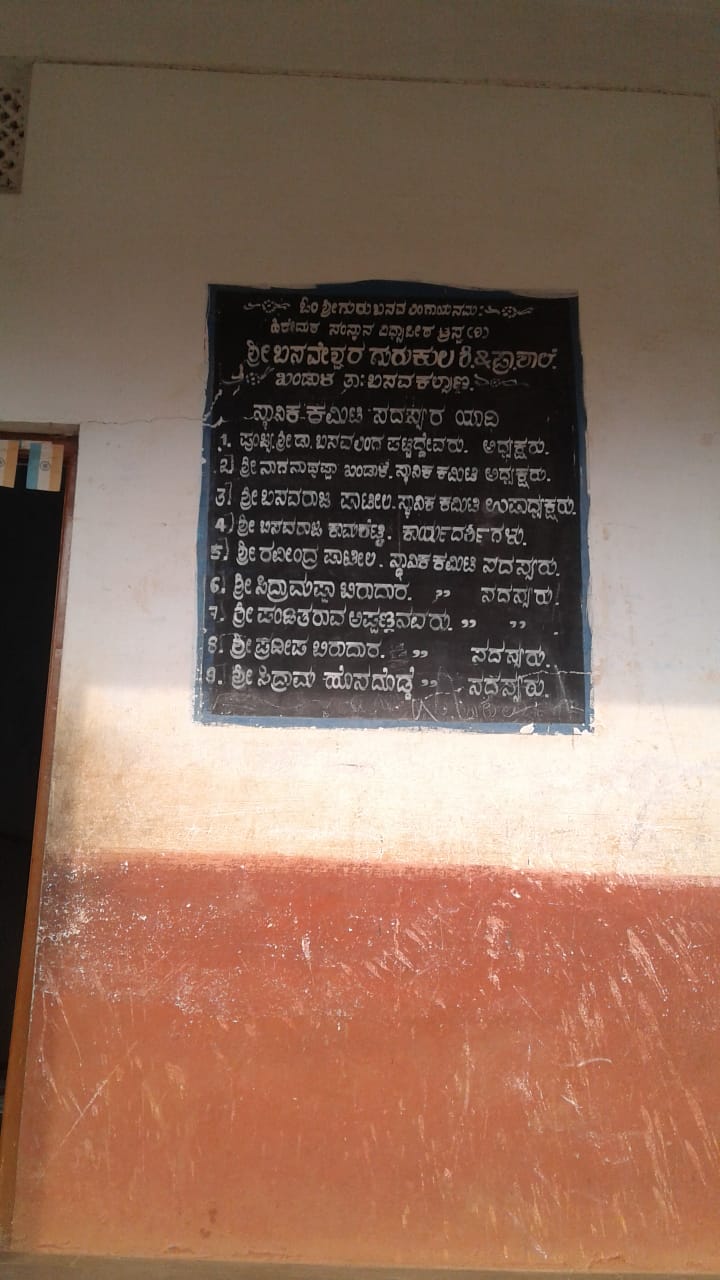 ಓಂ ಶ್ರೀ ಗುರು ಬಸವ ಲಿಂಗಾಯನಮಃ
ಹಿರೇಮಠ ಸಂಸ್ಥಾನ ವಿದ್ಯಾಪೀಠ ಟ್ರಸ್ಟ (ರಿ)
ಶ್ರೀ ಬಸವೇಶ್ವರ ಗುರುಕುಲ ಕಿ.&ಪ್ರಾ.ಶಾಲೆ.
ಖಂಡಾಳ ತಾ: ಬಸವಕಲ್ಯಾಣ.
ಸ್ಥಾನಿಕ ಕಮಿಟಿ ಸದಸ್ಯರ ಯಾದಿ
1. ಪೂಜ್ಯ ಶ್ರೀ ಡಾ. ಬಸವಲಿಂಗ ಪಟ್ಟದ್ದೇವರು. ಅಧ್ಯಕ್ಷರು.
2) ಶ್ರೀ ನಾಗನಾಥಪ್ಪಾ ಖಂಡಾಳೆ. ಸ್ಥಾನಿಕ ಕಮಿಟಿ ಅಧ್ಯಕ್ಷರು.
3) ಶ್ರೀ ಬಸವರಾಜ ಪಾಟೀಲ. ಸ್ಥಾನಿಕ ಕಮಿಟಿ ಉಪಾಧ್ಯಕ್ಷರು.
4) ಶ್ರೀ ಬಸವರಾಜ ಕಾಮಶೆಟ್ಟಿ. ಕಾರ್ಯದರ್ಶಿಗಳು.
5) ಶ್ರೀ ರವೀಂದ್ರ ಪಾಟೀಲ. ಸ್ಥಾನಿಕ ಕಮಿಟಿ ಸದಸ್ಯರು.
6. ಶ್ರೀ ಸಿದ್ರಾಮಪ್ಪಾ ಬಿರಾದಾರ. ,, ಸದಸ್ಯರು.
7. ಶ್ರೀ ಪಂಡಿತರಾವ ಅಪ್ಪಣ್ಣನವರು. ,, ,,
8. ಶ್ರೀ ಪ್ರದೀಪ ಬಿರಾದಾರ. ,, ಸದಸ್ಯರು.
9. ಶ್ರೀ ಸಿದ್ರಾಮ ಹೊಸದೊಡ್ಡೆ ,, ಸದಸ್ಯರು.